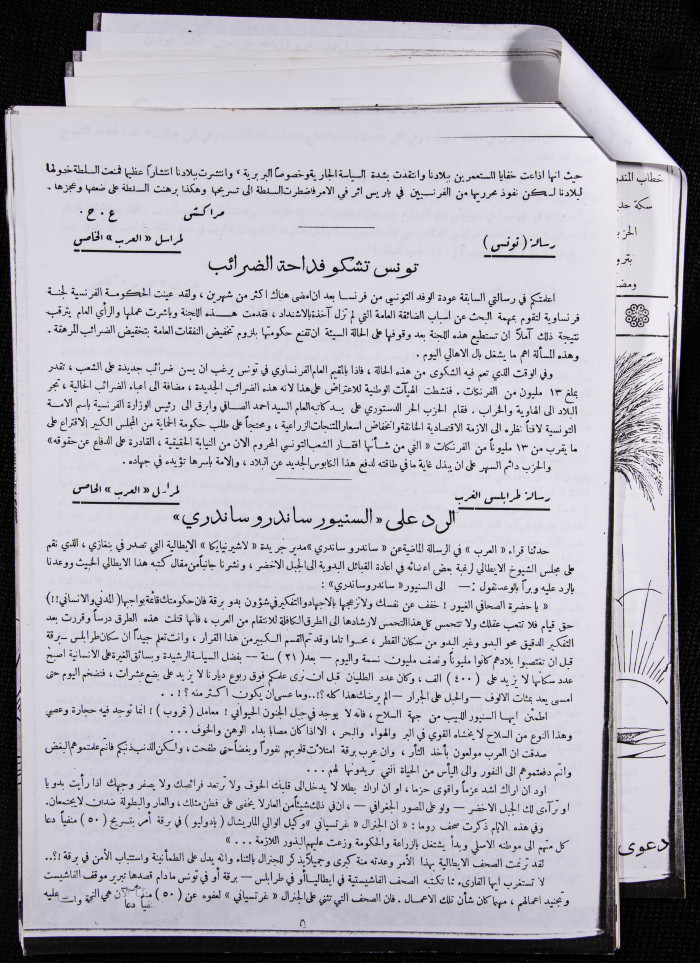 حيث انها اذاعت خفايا المستعمرين ببلادنا وانتقدت بشدة السياسة الجارية وخصوصاً البربرية ، وانتشرت ببلادنا انتشاراً عظيما فمنعت السلطة دخولها
لبلادنا لكن نفوذ محرريها من الفرنسيين في باريس اثر في الامر فاضطرت السلطة الى تسريحها وهكذا برهنت السلطة على ضعفها وعجزها .
مراكش ع . ح .
رسالة ( تونس )
لمراسل « العرب » الخاص
تونس تشكو فداحة الضرائب
اعلمتكم في رسالتي السابقة عودة الوفد التونسي من فرنسا بعد ان امضى هناك اكثر من شهرين ، ولقد عينت الحكومة الفرنسية لجنة
فرنساوية لتقوم بمهمة البحث عن اسباب الضائقة العامة التي لم تزل آخذة بالاشتداد ، فقدمت هذه اللجنة وباشرت عملها والرأي العام يترقب
نتيجة ذلك آملاً ان تستطيع هذه اللجنة بعد وقوفها على الحالة السيئة ان تقنع حكومتها بلزوم تخفيض النفقات العامة بتخفيض الضرائب المرهقة .
وهذه المسألة اهم ما يشغل بال الاهالي اليوم .
وفي الوقت الذي تعم فيه الشكوى من هذه الحالة ، فاذا بالمقيم العام الفرنساوي في تونس يرغب ان يسن ضرائب جديدة على الشعب ، تقدر
بمبلغ ١٣ مليون من الفرنكات . فنشطت الهيآت الوطنية للاعتراض على هذا لانه هذه الضرائب الجديدة ، مضافة الى اعباء الضرائب الحالية ، تجر
البلاد الى الهاوية والخراب . فقام الحزب الحر الدستوري على يد كاتبه العام السيد احمد الصافي وابرق الى رئيس الوزارة الفرنسية باسم الامة
التونسية لافتاً نظره الى الازمة الاقتصادية الخانقة وانخفاض اسعار المنتجات الزراعية ، ومحتجاً على طلب حكومة الحماية من المجلس الكبير الاقتراع على
ما يقرب من ١٣ مليوناً من الفرنكات « التي من شأنها افقار الشعب التونسي المحروم الان من النيابة الحقيقية ، القادرة على الدفاع عن حقوقه »
والحزب دائم السهر على ان يبذل غاية ما في طاقته لدفع هذا الكابوس الجديد عن البلاد ، والامة باسرها تؤيده في جهاده .
رسالة طرابلس الغرب
لمراسل « العرب » الخاص
الرد على « السنيور ساندرو ساندري »
حدثنا قراء « العرب » في الرسالة الماضية عن « ساندرو ساندري » مدير جريدة « الايطالية التي تصدر في بنغازي ، الذي نقم
على مجلس الشيوخ الايطالي لرغبة بعض اعضائه في اعادة القبائل البدوية الى الجبل الاخضر ، ونشرنا جانباً من مقال كتبه هذا الايطالي الخبيث ووعدنا
بالرد عليه وبراً بالوعد نقول : — الى السنيور « ساندرو ساندري » :
« يا حضرة الصحافي الغيور ! خفف عن نفسك ولا تزعجها بالاجهاد والتفكير في شؤون بدو برقة فان حكومتك قائمة بواجبها ( المدني والانساني !! )
حق قيام فلا تتعب عقلك ولا تتحمس كل هذا التحمس لارشادها الى الطرق الكافلة للانتقام من العرب ، فانها قتلت هذه الطرق درساً وقررت بعد
التفكير الدقيق محو البدو وغير البدو من سكان القطر ، محوا تاما وقد تم القسم الكبير من هذا القرار ، وانت تعلم جيداً ان سكان طرابلس — برقة
قبل ان تغتصبوا بلادهم كانوا مليوناً ونصف مليون نسمة واليوم — بعد ( ٢١ ) سنة — بفضل السياسة الرشيدة وبسائق الغيرة على الانسانية اصبح
عدد سكانها لا يزيد على ( ٤٠٠ ) الف ، وكان عدد الطليان قبل ان نرى علمكم فوق ربوع ديارنا لا يزيد على بضع عشرات ، فتضخم اليوم حتى
امسى يعد بمئات الالوف — والحبل على الجرار — الم يرضك هذا كله ؟!.. وما عسى ان يكون اكثر منه ؟!..
اطمئن ايها السنيور اللبيب من جهة السلاح ، فانه لا يوجد في جبل الجنون الحيواني ! معامل ( قروب ) ! انما توجد فيه حجارة وعصي
وهذا النوع من السلاح لا يخشاه القوي في البر والهواء والبحر ، الا اذا كان مصابا بداء الوهن والخوف ...
صدقت ان العرب مولعون بأخذ الثأر ، وان عرب برقة امتلأت قلوبهم نفوراً وبغضاً حتى طفحت ، ولكن الذنب ذنبكم فانتم علمتموهم البغض
وانتم دفعتموهم الى النفور والى اليأس من الحياة التي تريدونها لهم ...
اود ان اراك اشد عزماً واقوى حزما ، او ان اراك بطلا لا يدخل الى قلبك الخوف ولا ترتعد فرائصك ولا يصفر وجهك اذا رأيت بدويا
او تراءى لك الجبل الاخضر — ولو على المصور الجغرافي — ، ان في ذلك شيئاً من العار لا يخفى على فطن مثلك ، والعار والبطولة ضدان لا يجتمعان .
وفي هذه الايام ذكرت صحف روما : « ان الجنرال « غرتسياني » وكيل الوالي الماريشال ( بادوليو ) في برقة أمر بتسريح ( ٥٠ ) منفياً دعا
كل منهم الى موطنه الاصلي وبدأ يشتغل بالزراعة والحكومة وزعت عليهم البذور اللازمة ... »
لقد ترنمت الصحف الايطالية بهذا الأمر وعدته منة كبرى وجميلا يذكر للجنرال بالثناء وانه يدل على الطمأنينة واستتباب الأمن في برقة !؟..
لا تستغرب ايها القارئ ما تكتبه الصحف الفاشيستية في ايطاليا أو في طرابلس — برقة أو في تونس ما دام قصدها تبرير موقف الفاشيست
وتمجيد اعمالهم ، مهما كان شأن تلك الاعمال . فان الصحف التي تثني على الجنرال « غرتسياني » لعفوه عن ( ٥٠ ) منفياً
خطاب
سكة حديد
الحزب
بترو
دعوى